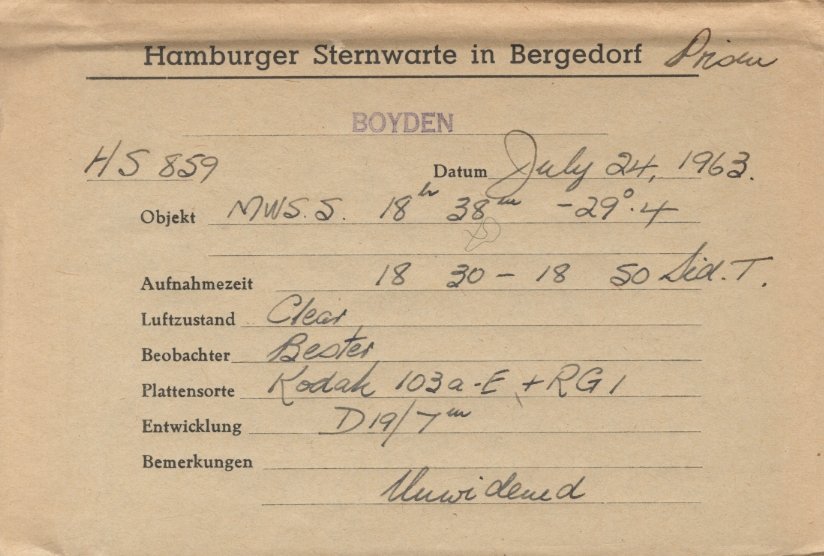 Hamburger Sternwarte in Bergedorf Prism
BOYDEN
HS 859 Datum July 24, 1963.
Objekt MWS. S. 18h 38m -29°.4
Aufnahmezeit 18 30 - 18 50 Sid. T.
Luftzustand Clear
Beobachter Bester
Plattensorte Kodak 103a-E + RG1
Entwicklung D19/7m
Bemerkungen
Unwidened